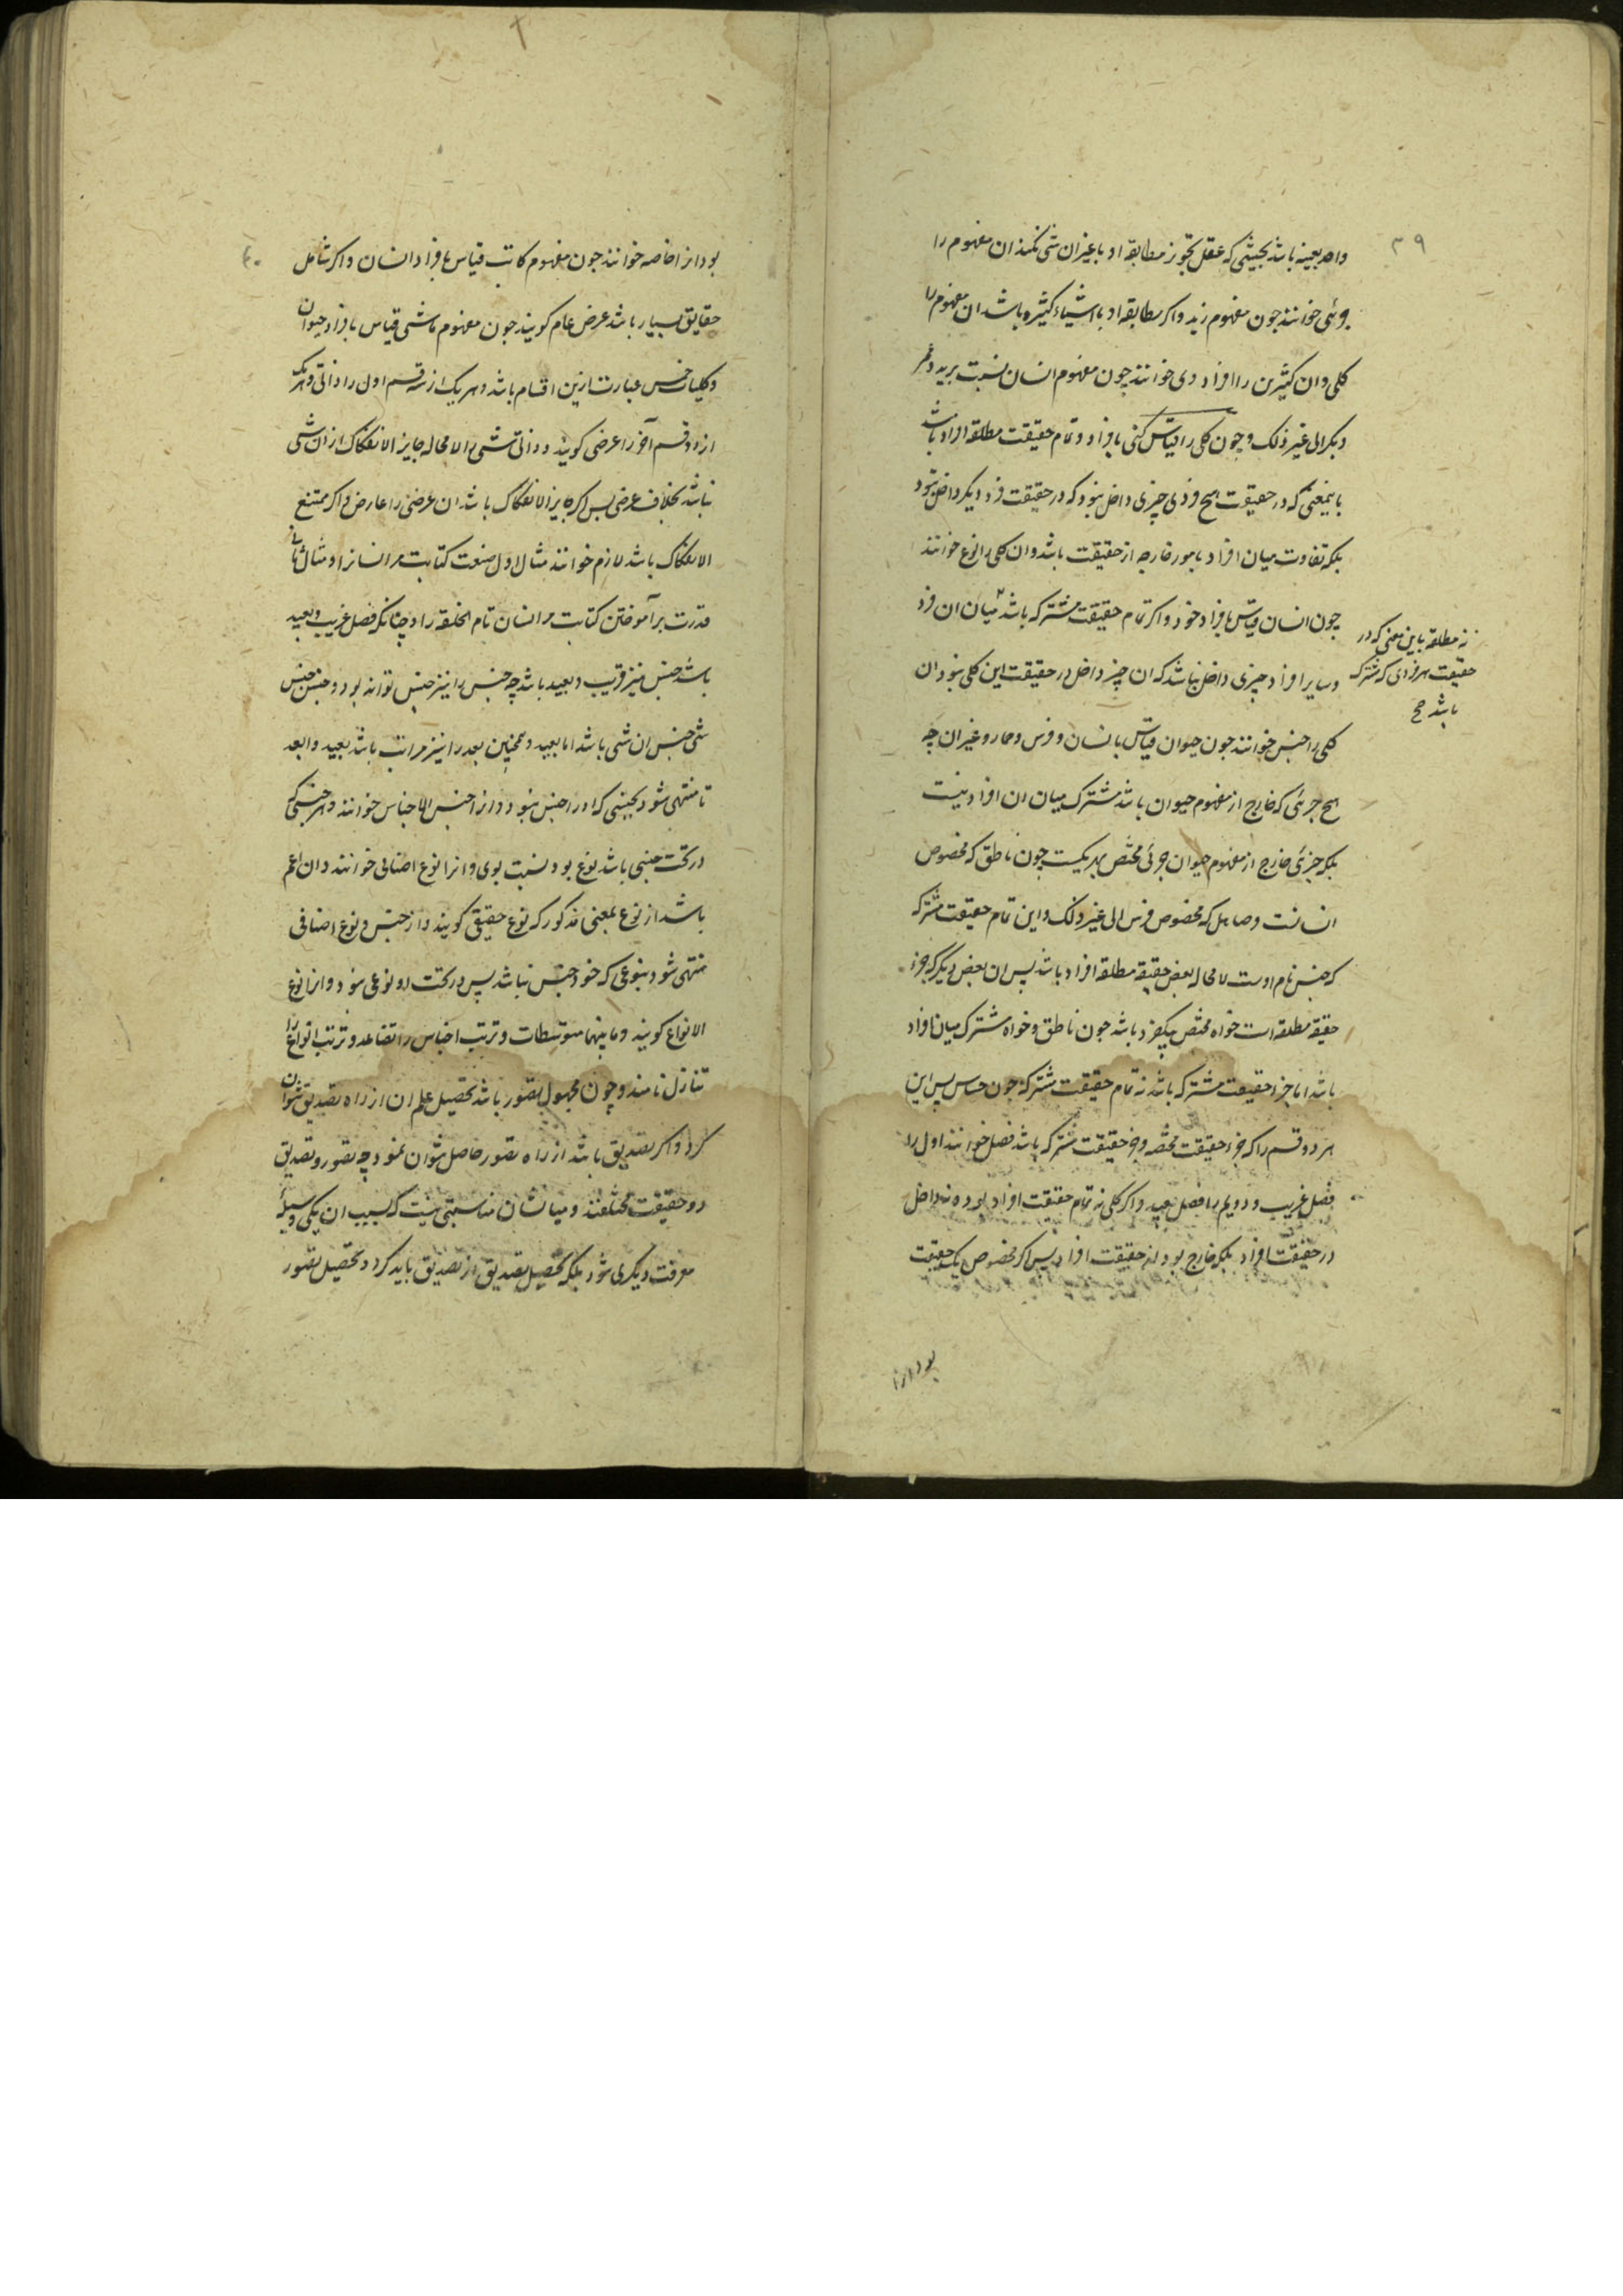 ۳۹
واحد بعینه باشد بحیثی که عقل تجویز مطابقه او با غیر ان شی نکند ان مفهوم را
جزئی خوانند چون مفهوم زید و اکر مطابقه او با اشیاء کثیره باشد ان مفهوم را
کلی و ان کثیرین را افراد وی خوانند چون مفهوم انسان نسبت بزید و عمر
دیکر الی غیر ذلک و چون کلی را قیاس کنی بافراد و تمام حقیقت مطلقه افراد باشد
باینمعنی که در حقیقت هیچ فردی چیزی داخل نبود که در حقیقت فرد دیکر داخل نبود
بلکه تفاوت میان افراد بامور خارجه از حقیقت باشد و ان کلی را نوع خوانند
چون انسان قیاس بافراد خود و اکر تمام حقیقت مشترکه باشد میان ان فرد
و سایر افراد چیزی داخل نباشد که ان چیز داخل در حقیقت این کلی نبود ان
کلی را جنس خوانند چون حیوان قیاس بانسان و فرس و حمار و غیر ان چه
هیچ جزئی که خارج از مفهوم حیوان باشد مشترک میان ان افراد نیست
بلکه جزئی خارج از مفهوم حیوان جزئی مختص بهر یکیست چون ناطق که مخصوص
انسانست و صاهل که مخصوص فرس الی غیر ذلک و این تمام حقیقت مشترکه
که جنس نام اوست لامحاله بعض حقیقه مطلقه افراد باشد پس ان بعض دیکر که جزء
حقیقه مطلقه است خواه مختص بیکفرد باشد چون ناطق و خواه مشترک میان افراد
باشد اما جزء حقیقت مشترکه باشد نه تمام حقیقت مشترکه چون حساس پس این
هر دو قسم را که جزء حقیقت مختصه و جزء حقیقت مشترکه باشد فصل خوانند اول را
فصل قریب و دویم را فصل بعید و اکر کلی نه تمام حقیقت افراد بوده نه داخل
در حقیقت افراد بلکه خارج بود از حقیقت افراد پس اکر مخصوص یک حقیقت
نه مطلقه باین معنی که در
حقیقت هر فردی که مشترک
باشد صح
بود انرا
۴۰
بود انرا خاصه خوانند چون مفهوم کاتب قیاس بافراد انسان و اکر شامل
حقایق بسیار باشد عرض عام کویند چون مفهوم ماشی قیاس بافراد حیوان
و کلیات خمس عبارت ازین اقسام باشد و هر یک از سه قسم اول را ذاتی و هر یک
از دو قسم آخر را عرضی کویند و ذاتی شیء لامحاله جایز الانفکاک از ان شی
نباشد بخلاف عرضی پس اکر جایز الانفکاک باشد ان عرضی را عارض و اکر ممتنع
الانفکاک باشد لازم خوانند مثال اول صنعت کتابت مر انسانرا و مثال ثانی
قدرت بر آموختن کتابت مر انسان تام الخلقه را و چنانکه فصل قریب و بعید
باشد جنس نیز قریب و بعید باشد چه جنس را نیز جنس تواند بود و جنس جنس
شی جنس ان شی باشد اما بعید و همچنین بعد را نیز مراتب باشد بعید و ابعد
تا منتهی شود بجنسی که اورا جنس نبود و انرا جنس الاجناس خوانند و هر جنسی که
در تحت جنسی باشد نوع بود نسبت بوی و انرا نوع اضافی خوانند و ان اعم
باشد از نوع بمعنی مذکور که نوع حقیقی کویند و از جنس و نوع اضافی
منتهی شود بنوعی که خود جنس نباشد پس در تحت او نوعی نبود و انرا نوع
الانواع کویند و ما بینهما متوسطات و ترتب اجناس را تصاعد و ترتب انواع را
تنازل نامند و چون مجهول تصور باشد تحصیل علم ان از راه تصدیق نتوان
کرد و اکر تصدیق باشد از راه تصور حاصل نتوان نمود چه تصور و تصدیق
دو حقیقت مختلفند و میانشان مناسبتی نیست که بسبب ان یکی وسیله
معرفت دیکری شود بلکه تحصیل تصدیق از تصدیق باید کرد و تحصیل تصور